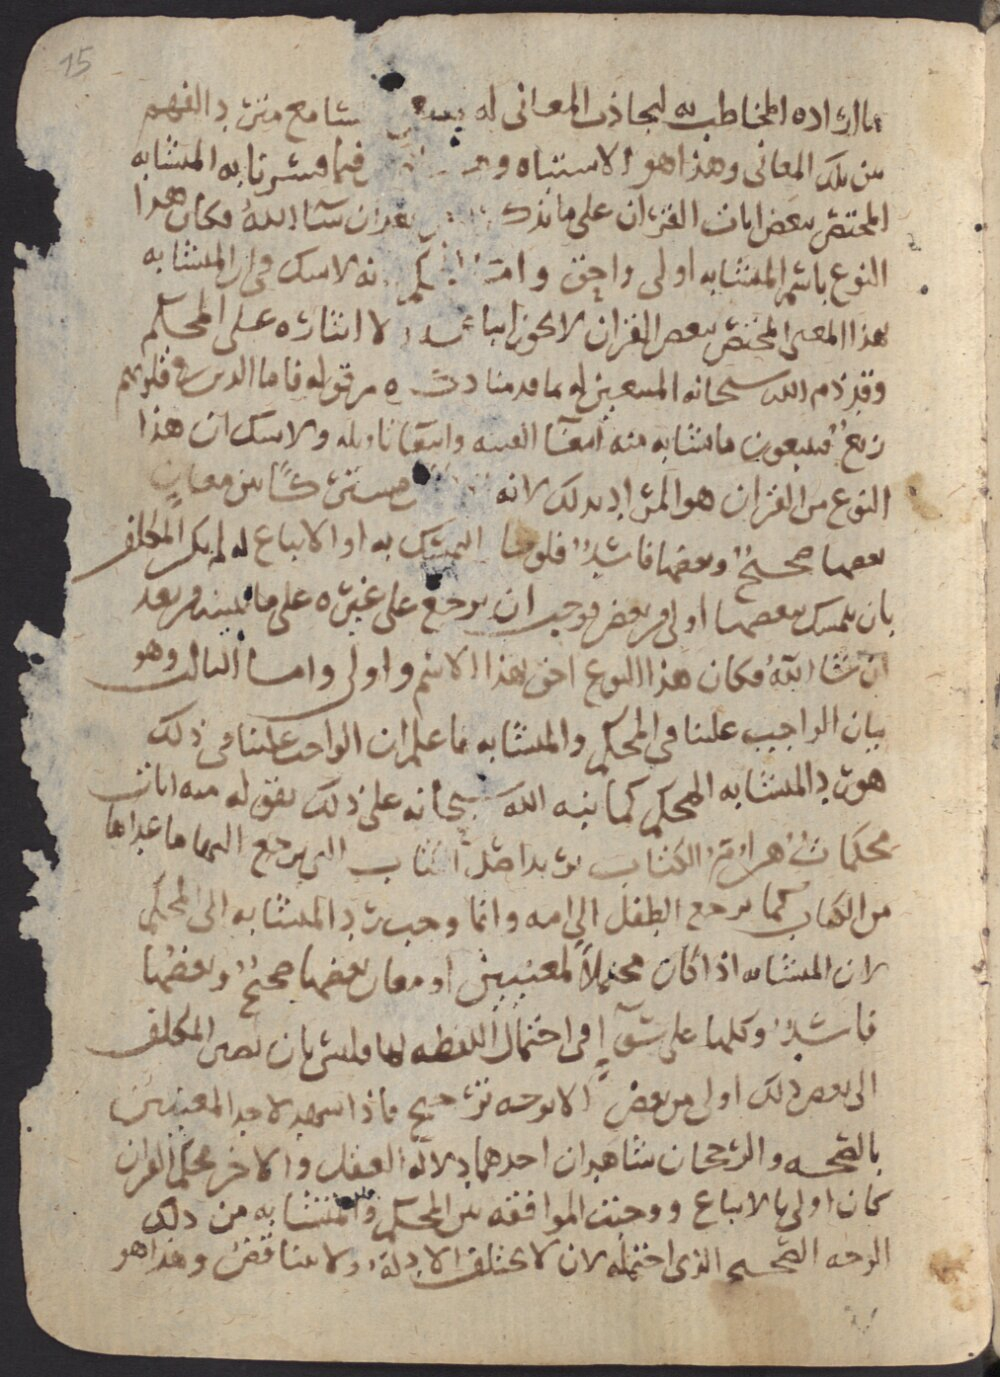 15
ما اراده المخاطب به لتجاذب المعانى له سامع متردد الفهم
بين تلك المعانى وهذا هو الاشتباه فيما فسرنا به المتشابه
المختص ببعض ايات القران على ما نذكره بعد ان شا الله فكان هذا
النوع باسم المتشابه اولى واحق وانه لا شك فى ان المتشابه
بهذا المعنى المختص ببعض القران لا يجوز اتباعه ولا ايثاره على المحكم
وقد ذم الله سبحانه المتبعين له بما قدمنا ذكره من قوله فاما الذين فى قلوبهم
زيغ فيتبعون ما تشابه منه ابتغا الفتنه وابتغا تاويله ولا شك ان هذا
النوع من القران هو المراد بذلك لانه مشتركا بين معان
بعضها صحيح وبعضها فاسد فلو التمسك به او الاتباع له لم يكن المكلف
بان يتمسك ببعضها اولى من بعض فوجب ان يرجع على غيره على ما نبينه من بعد
ان شا الله فكان هذا النوع احق بهذا الاسم واولى واما الثالث وهو
بيان الواجب علينا فى المحكم والمتشابه فاعلم ان الواجب علينا فى ذلك
هو رد المتشابه الى المحكم كما نبه الله سبحانه على ذلك بقوله منه ايات
محكمات هن ام الكتاب يريد اصل الكتاب التى يرجع اليها ما عداها
من الكتاب كما يرجع الطفل الى امه وانما وجب رد المتشابه الى المحكم
لان المتشابه اذا كان محتملا لمعنيين او معان بعضها صحيح وبعضها
فاسد وكلها على سوآ فى احتمال اللفظه لها فليس بان يصير المكلف
الى بعض ذلك اولى من بعض الا بوجه ترجيح فاذا شهد لاحد المعنيين
بالصحه والرجحان شاهدان احدهما دلالة العقل والاخر محكم القران
كان اولى بالاتباع ووجبت الموافقه بين المحكم والمتشابه من ذلك
الوجه الصحيح الذى احتمله لان لا تختلف الادلة ولا تتناقض وهذا هو